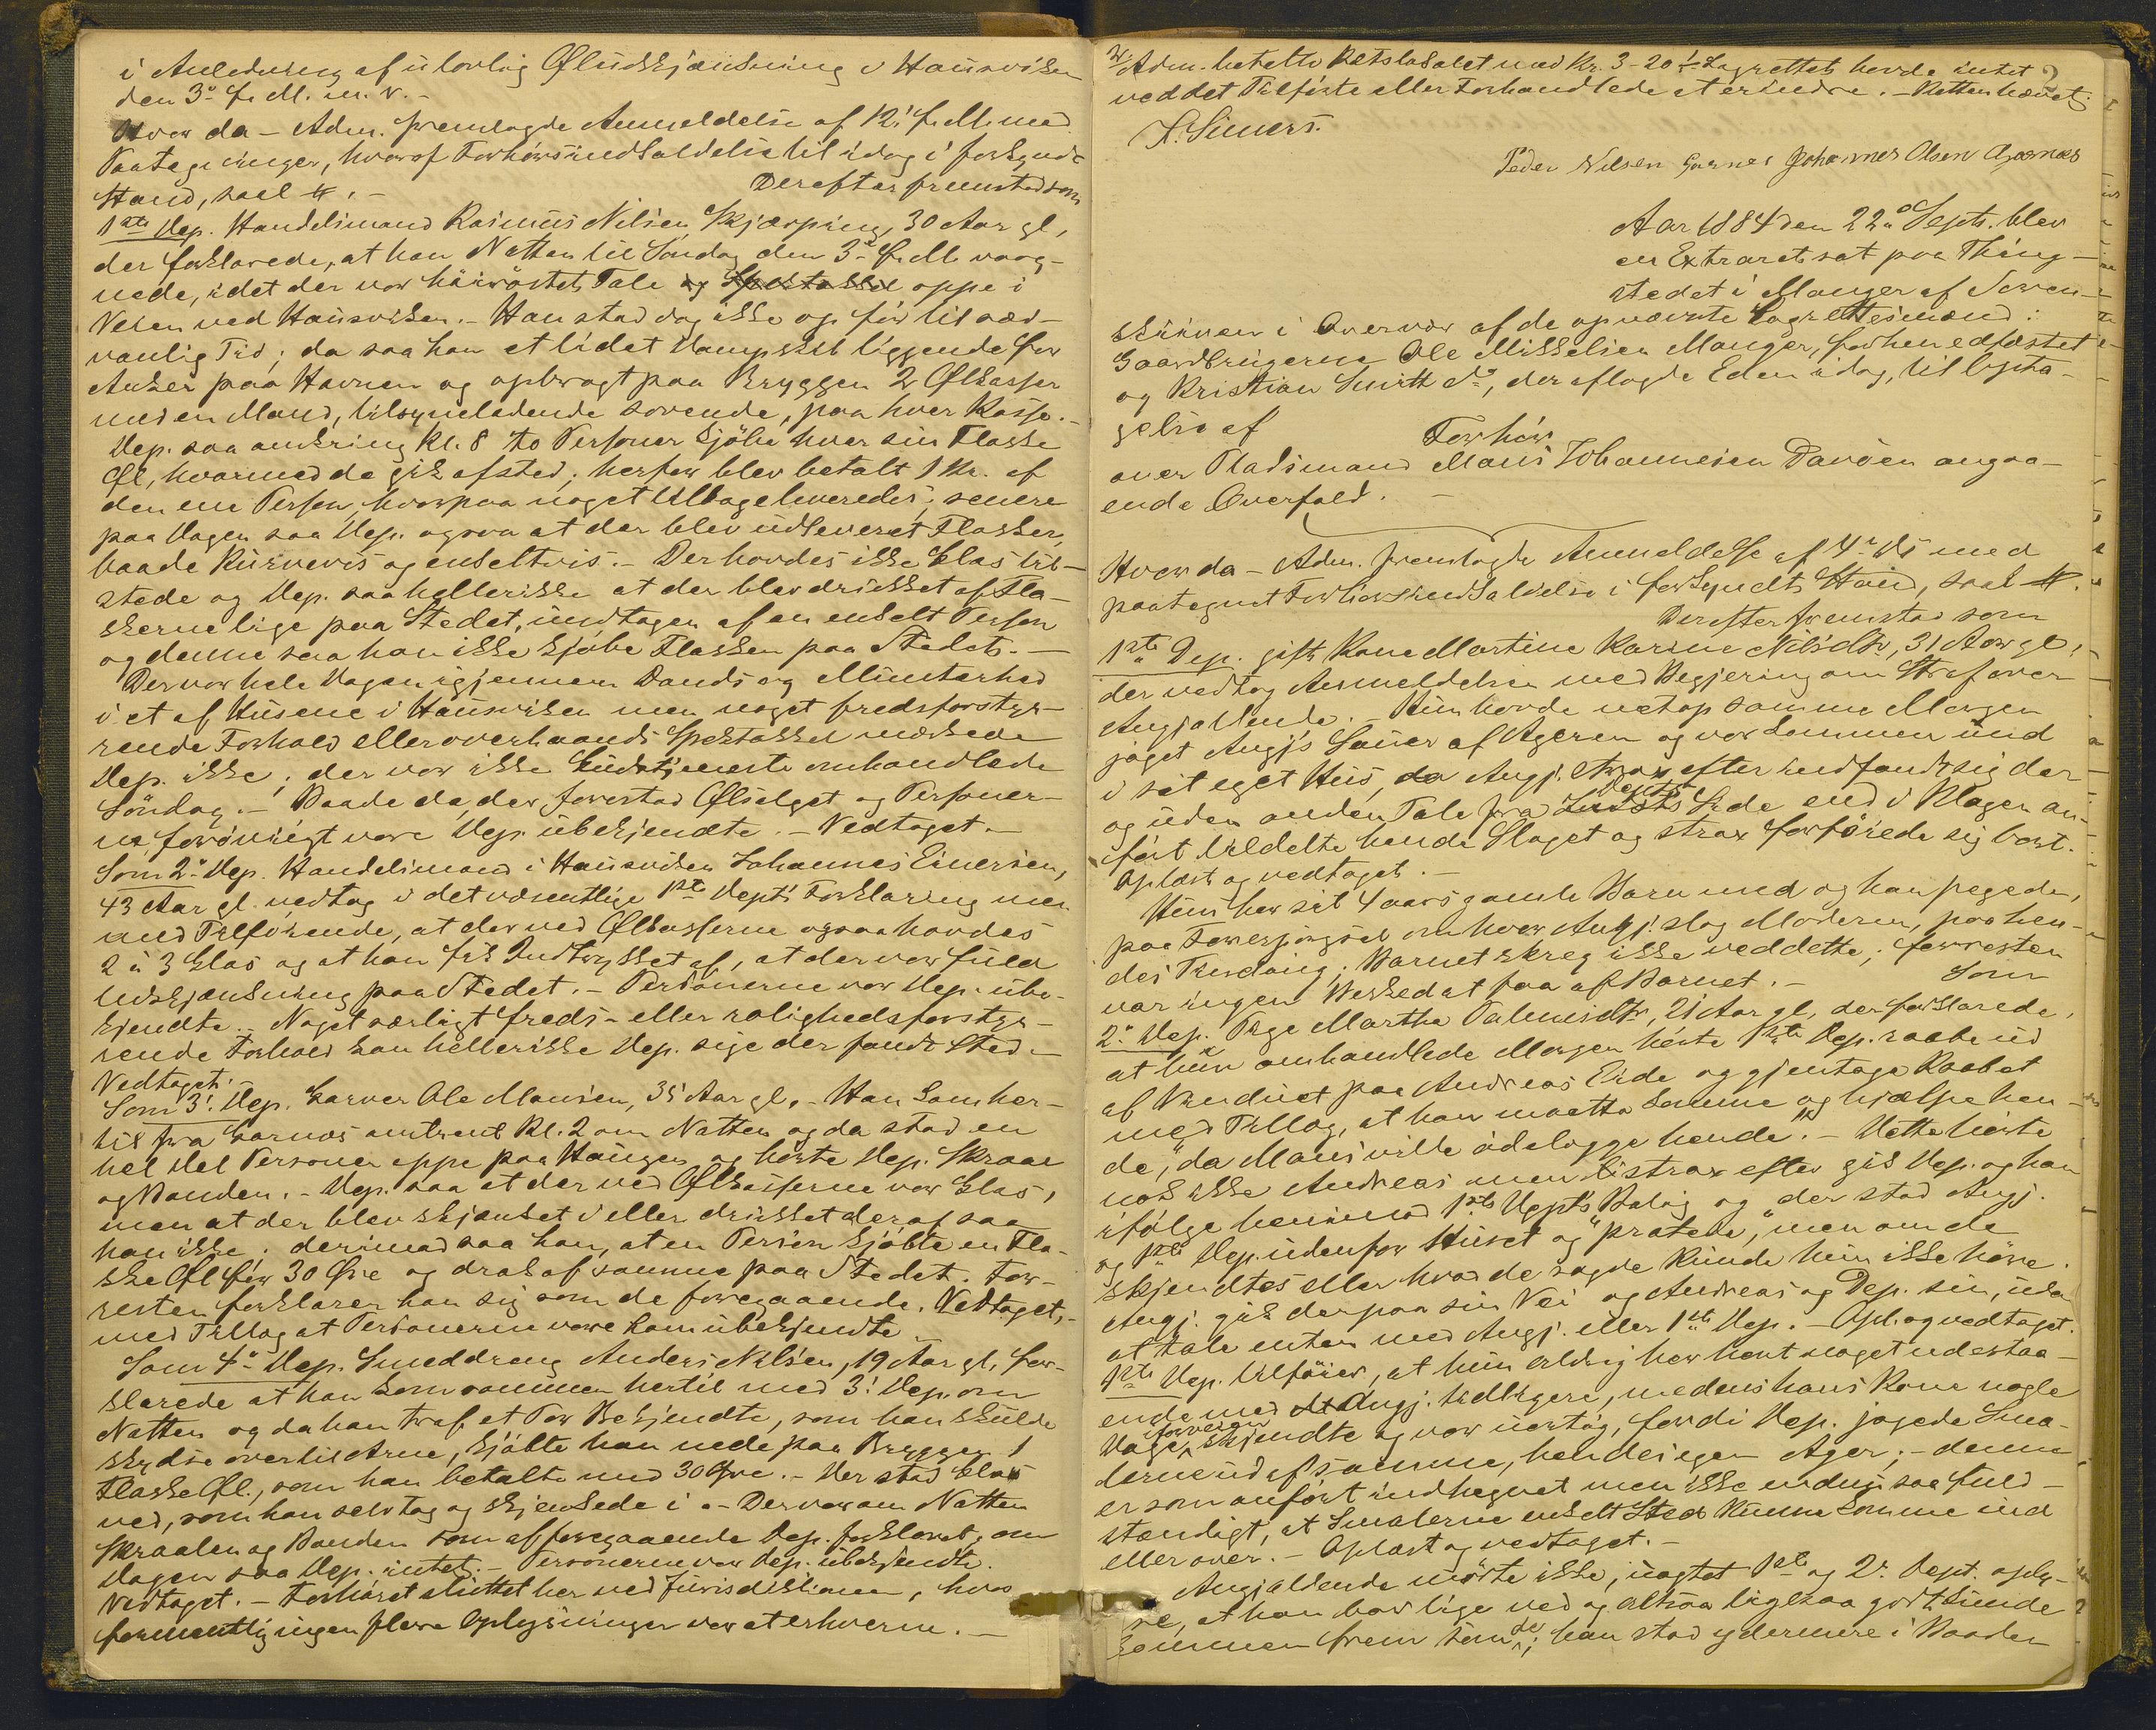 i Anledning af ulovlig Øludskjænkning i Hausviken
den 3de f. M. m. v. -
Hvor da - Adm. fremlagde Anmeldelse af 12. f. M. med
Paategninger, hvoraf Forhørsindkaldelse til idag i forkyndt
Stand, saal #. -
Derefter fremstod som
1ste Dep. Handelsmand Rasmus Nilsen Skjærping, 30 Aar gl,
der forklarede, at han Natten til Søndag den 3de f. M. vaag-
nede, idet der var höiröstet Tale og Spektakkel oppe i
Veien ved Hausviken. - Han stod dog ikke op før til sæd-
vanlig Tid; da saa han et lidet Dampskib liggende for
Anker paa Havnen og opbragt paa Bryggen 2 Ølkasser
med en Mand, tilsyneladende sovende, paa hver Kasse. -
Dep. saa omkring Kl. 8 to Personer kjöbe hver sin Flaske
Øl, hvormed de gik afsted; herfor blev betalt 1 Kr. af
den ene Person, hvorpaa noget tilbageleveredes; senere
paa Dagen saa Dep. ogsaa at der blev udleveret Flasker,
baade kurvevis og enkeltvis. - Der havdes ikke Glas til-
stede og Dep. saa heller ikke at der blev drukket af Fla-
skerne lige paa Stedet, undtagen af en enkelt Person
og denne saa han ikke kjöbe Flasken paa Stedet. -
Der var hele Dagen igjennem Dands og Munterhed
i et af Husene i Hausviken men noget fredsforstyr-
rende Forhold eller overhaands Spektakkel mærkede
Dep. ikke; der var ikke Gudstjeneste omhandlede
Söndag. - Baade de, der forestod Ølsalget og Personer-
ne foröivrigt vare Dep. ubekjendte. - Vedtaget. -
Som 2de Dep. Handelsmand i Hausviken Johannes Einersen,
43 Aar gl. vedtog i det væsentlige 1ste Depts Forklaring men
med Tilføiende, at der ved Ølkasserne ogsaa havdes
2 à 3 Glas og at han fik Indtrykket af, at der var fuld
Udskjænkning paa Stedet. - Personerne var Dep. ube-
kjendte. - Noget særligt freds- eller rolighedsforstyr-
rende Forhold kan heller ikke Dep. sige der fandt Sted. -
Vedtaget.
Som 3. Dep. Garver Ole Monsen, 35 Aar gl. - Han kom her-
til fra Garnæs omtrent Kl. 2 om Natten og da stod en
hel Del Personer oppe paa Haugen og hörte Dep. Skraal
og Banden. - Dep. saa at der ved Ølkasserne var Glas,
men at der blev skjænket i eller drukket deraf saa
han ikke; derimod saa han, at en Person kjöbte en Fla-
ske Øl for 30 Øre og drak af samme paa Stedet. For-
resten forklarer han sig som de foregaaende. Vedtaget, -
med Tillæg at Personerne vare ham ubekjendte. -
Som 4de Dep. Smeddreng Anders Nilsen, 19 Aar gl, for-
klarede at han kom sammen hertil med 3. Dep. om
Natten og da han traf et Par Bekjendte, som han skulde
skydse over til Arne, kjöbte han nede paa Bryggen 1
Flaske Øl, som han betalte med 30 Øre. - Der stod Glas
ved, som han selv tog og skjenkede i. - Der var om Natten
Skraalen og Banden som af foregaaende Dep. forklaret; om
Dagen saa Dep. intet. - Personerne var Dep. ubekjendte.
Vedtaget. - Forhöret sluttet her ved Jurisdiktionen, hvor
formentlig ingen flere Oplysninger var at erhverve. -
Adm. betalte Retslokalet med Kr. 3-20. - Lagrettet havde intet
ved det Tilførte eller Forhandlede at erindre. - Retten hævet.
Peder Nilsen Garnes Johannes Olsen Garnæs
Aar 1884 den 22de Septr. blev
en Extraret sat paa Thing-
stedet i Manger af Soren-
skriveren i Overvær af de opnævnte Lagrettesmænd:
Gaardbrugerne Ole Mikkelsen Manger, forhen edfæstet
og Kristian Smitt do, der aflagde Eden idag, til Opta-
gelse af
Forhör
over Pladsmand Mons Johannesen Davöen angaa-
ende Overfald. -
Hvor da - Adm. fremlagde Anmeldelse af 4de ds med
paategnet Forhörsindkaldelse i forkyndt Stand, saal #.
Derefter fremstod som
1ste Dep. gift Kone Martine Karine Nilsdtr, 31 Aar gl,
der vedtog Anmeldelsen med Begjering om Straf over
Angjældende. - Hun havde netop samme Morgen
jaget Angj's Sauer af Ageren og var kommen ind
i sit eget Hus, da Angj. strax efter indfandt sig der
og uden anden Tale fra Depts Side end i Klagen an-
fört tildelte hende Slaget og strax forföiede sig bort.
Oplæst og vedtaget. -
Hun har sit 4 aars gamle Barn med og han pegede,
paa Forespörgsel om hvor Angj. slog Moderen, paa hen-
des Tinding; Barnet skreg ikke ved dette; forresten
var ingen Besked at faa af Barnet. - Som
2de Dep. Pige Martha Salmisdtr, 21 Aar gl, der forklarede,
at hun omhandlede Morgen hörte 1ste Dep. raabe ud
af Vinduet paa Andreas Eide og gjentage Raabet
med Tillæg, at han maatte komme og hjælpe hen-
de, "da Mons vilde ödelægge hende". - Dette hörte
nok ikke Andreas men strax efter gik Dep. og han
ifölge henimod 1ste Depts Bolig og der stod Angj.
og 1ste Dep. udenfor Huset og "pratede", men om de
skjendtes eller hvad de sagde kunde hun ikke höre.
Angj. gik derpaa sin Vei og Andreas og Dep. sin, uden
at tale enten med Angj. eller 1ste Dep. - Opl. og vedtaget.
1ste Dep. tilföier, at hun aldrig har havt noget udestaa-
ende med Angj. tidligere, medens hans Kone nogle
Dage forveien skjendte og var uartig, fordi Dep. jagede Sma-
lerne ud af samme, hendes egen Ager; - denne
er som anfört indhegnet men ikke endnu saa fuld-
stændigt, at Smalerne enkelt Sted kunne komme ind
eller over. - Oplæst og vedtaget. -
Angjældende mödte ikke, uagtet 1ste og 2. Dept. oply-
se, at han bor lige ved og altsaa ligesaa godt kunde
kommen frem som de; han stod ydermere i Baaden